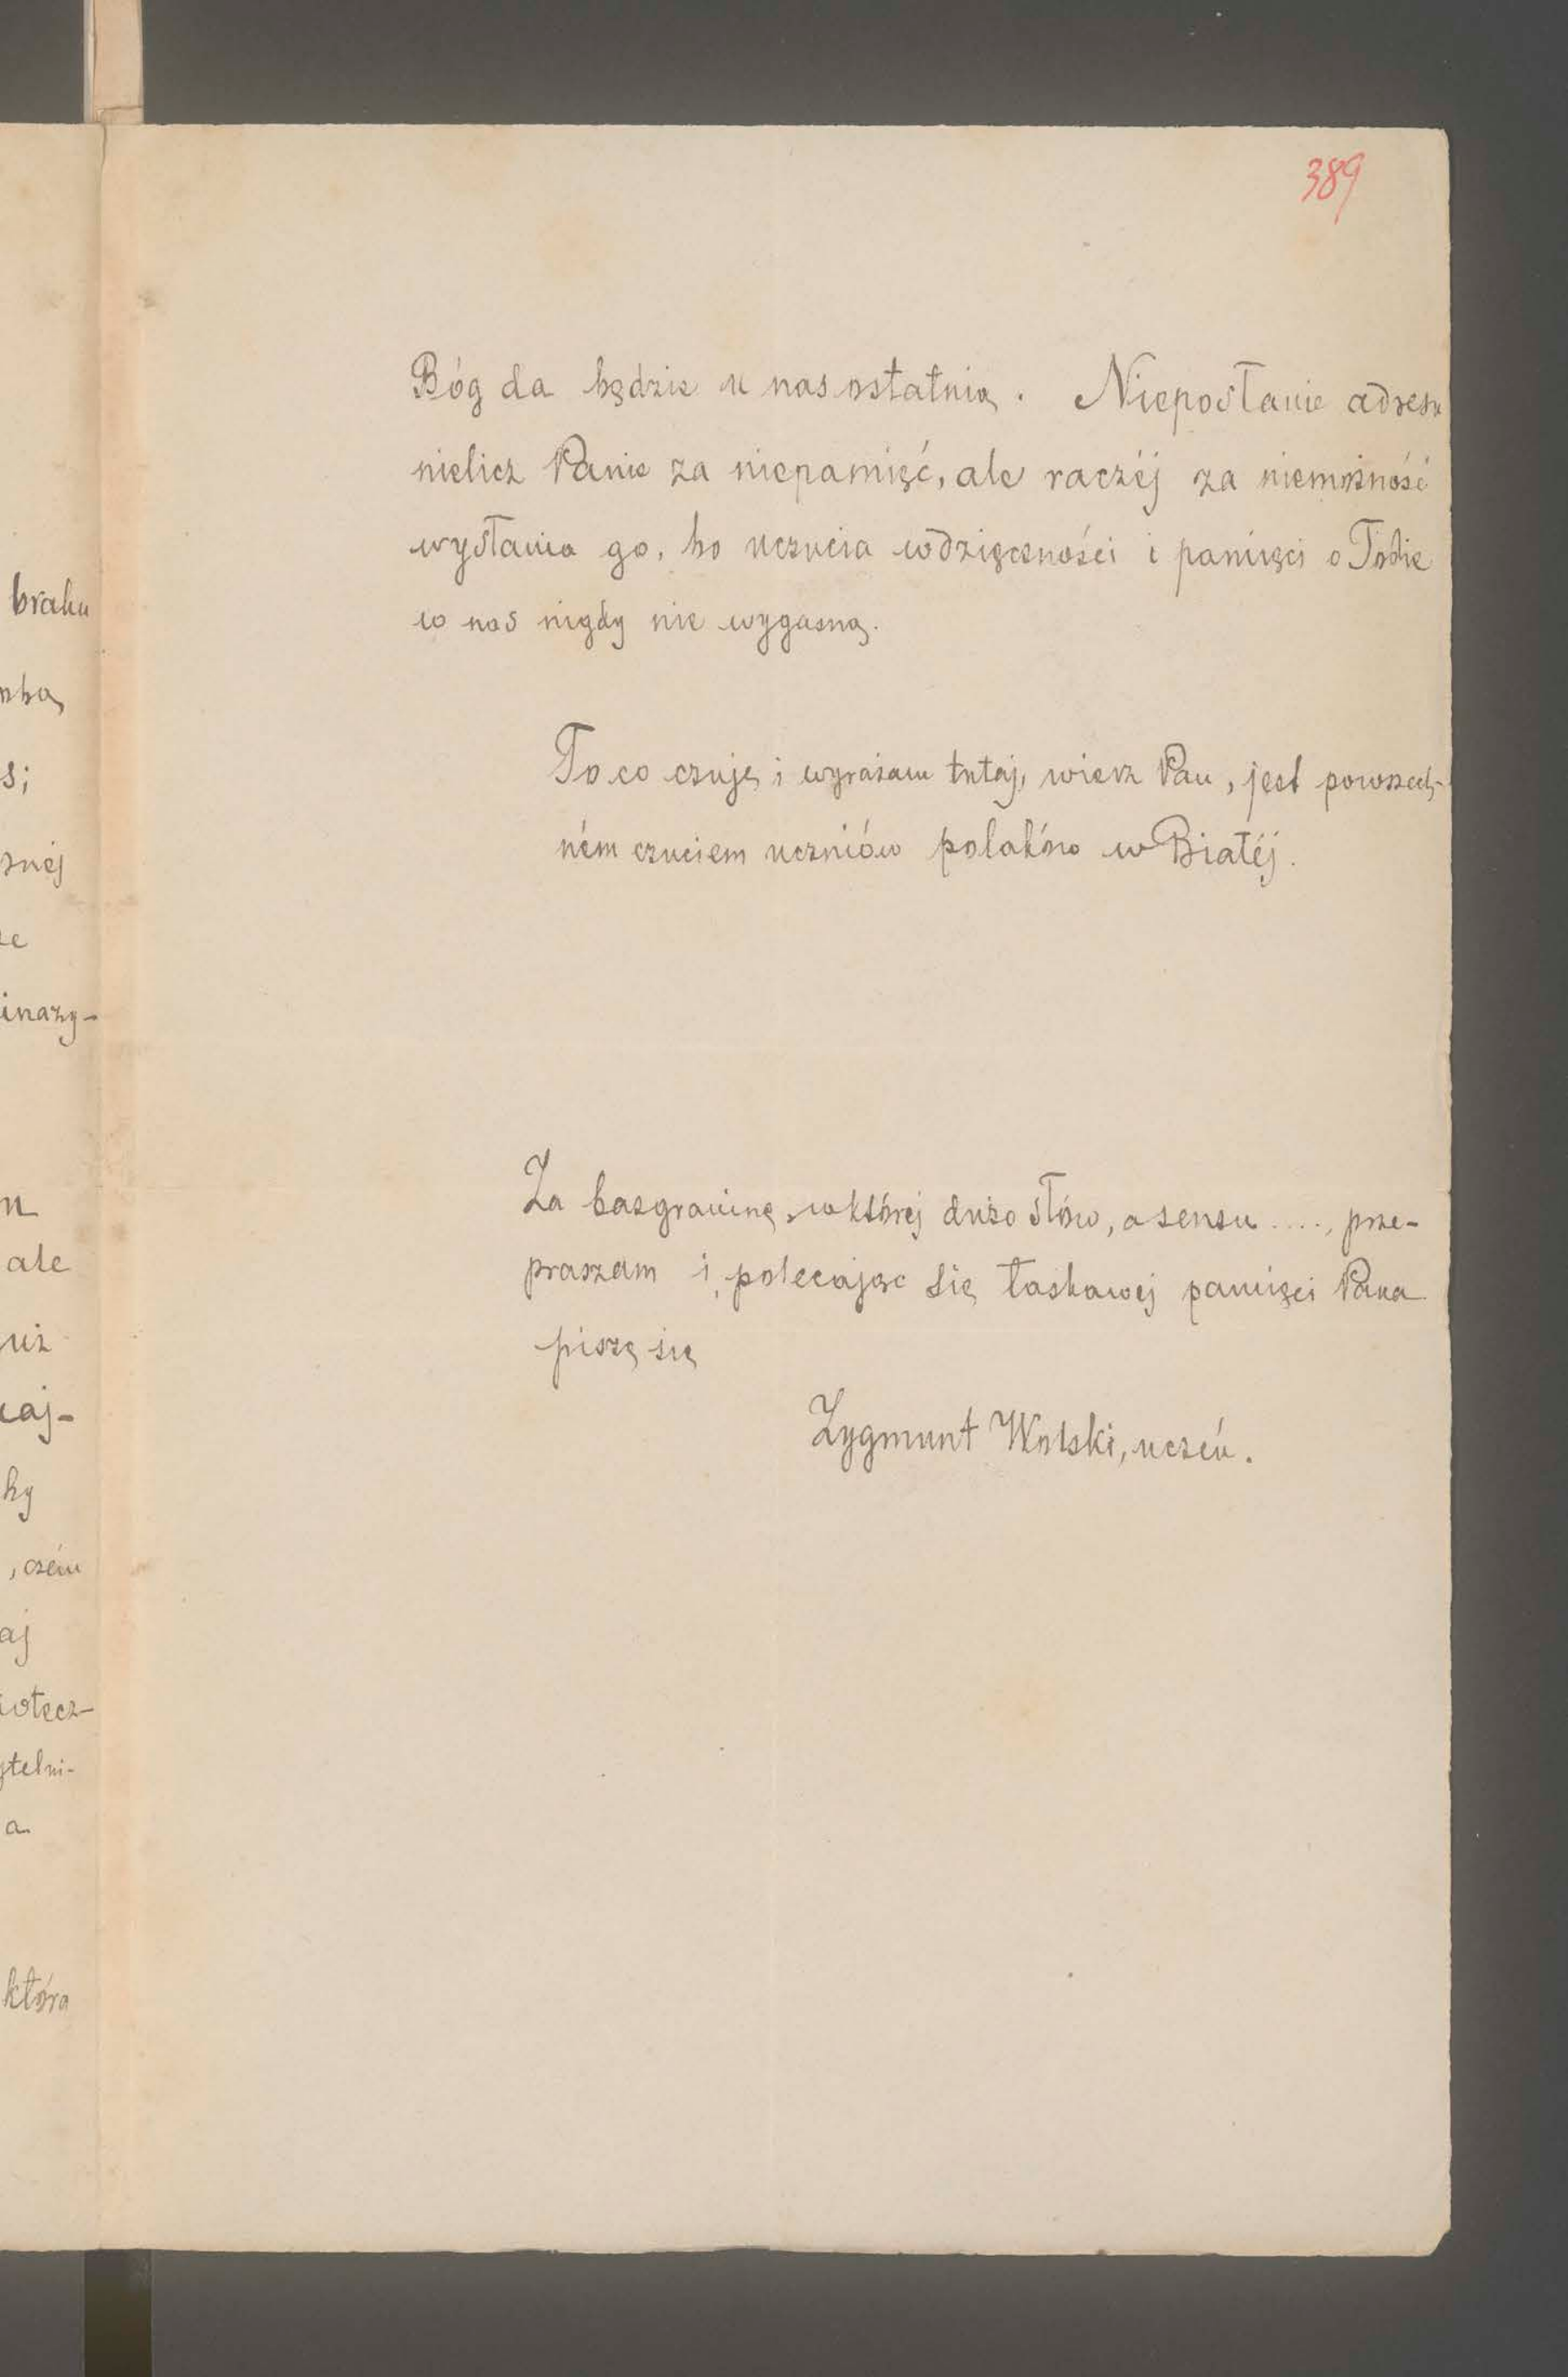 389
Bóg da będzie u nas ostatnią. Nieposłanie adresu
nielicz Panie za niepamięć, ale raczéj za niemożność
wysłania go, bo uczucia wdzięczności i pamięci o Tobie
w nas nigdy nie wygasną.
To co czuję i wyrażam tutaj, wierz Pan, jest powszech-
ném czuciem uczniów polaków w Białéj.
Za bazgraninę, w której dużo słów, a sensu ...., prze-
praszam i, polecając się łaskawej pamięci Pana
piszę się
Zygmunt Wolski, uczeń.
braku
s;
ale
już
, czém
aj
a
która